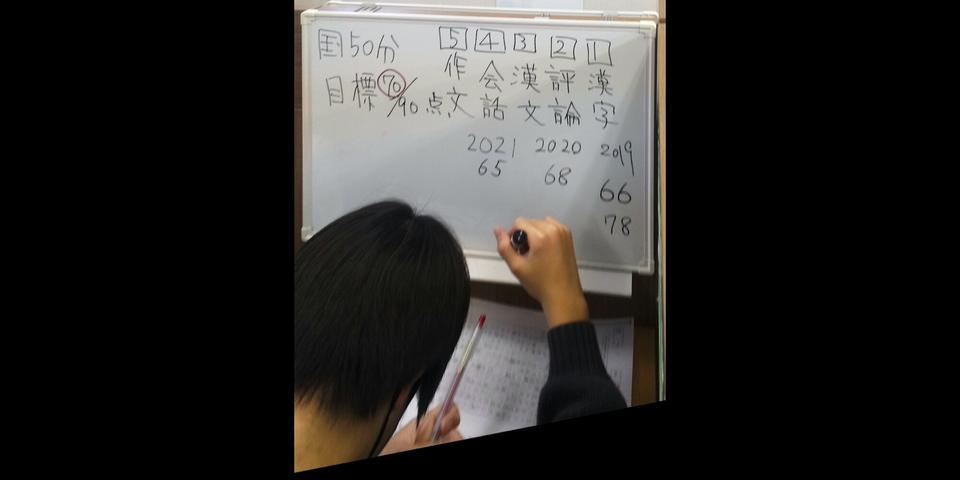 国50分
目標70/90点
1漢字
2評論
3漢文
4会話
5作文
2019
66
78
2020
68
2021
65